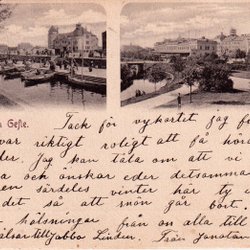 Gefle.
Tack för vykortet jag f
var riktigt roligt att få hör
der. Jag kan tala om att vi
a och önskar eder detsamma
en särdeles vinter här ty
det så att snön går bort.
hälsningar från en alla till
älsar till Linden. Från